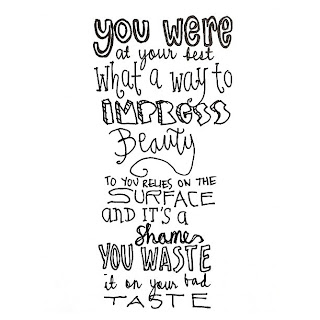 you were
at your best
what a way to
IMPRESS
Beauty
TO YOU RELIES ON THE
SURFACE
AND IT'S A
shame
YOU WASTE
it on your bad
TASTE